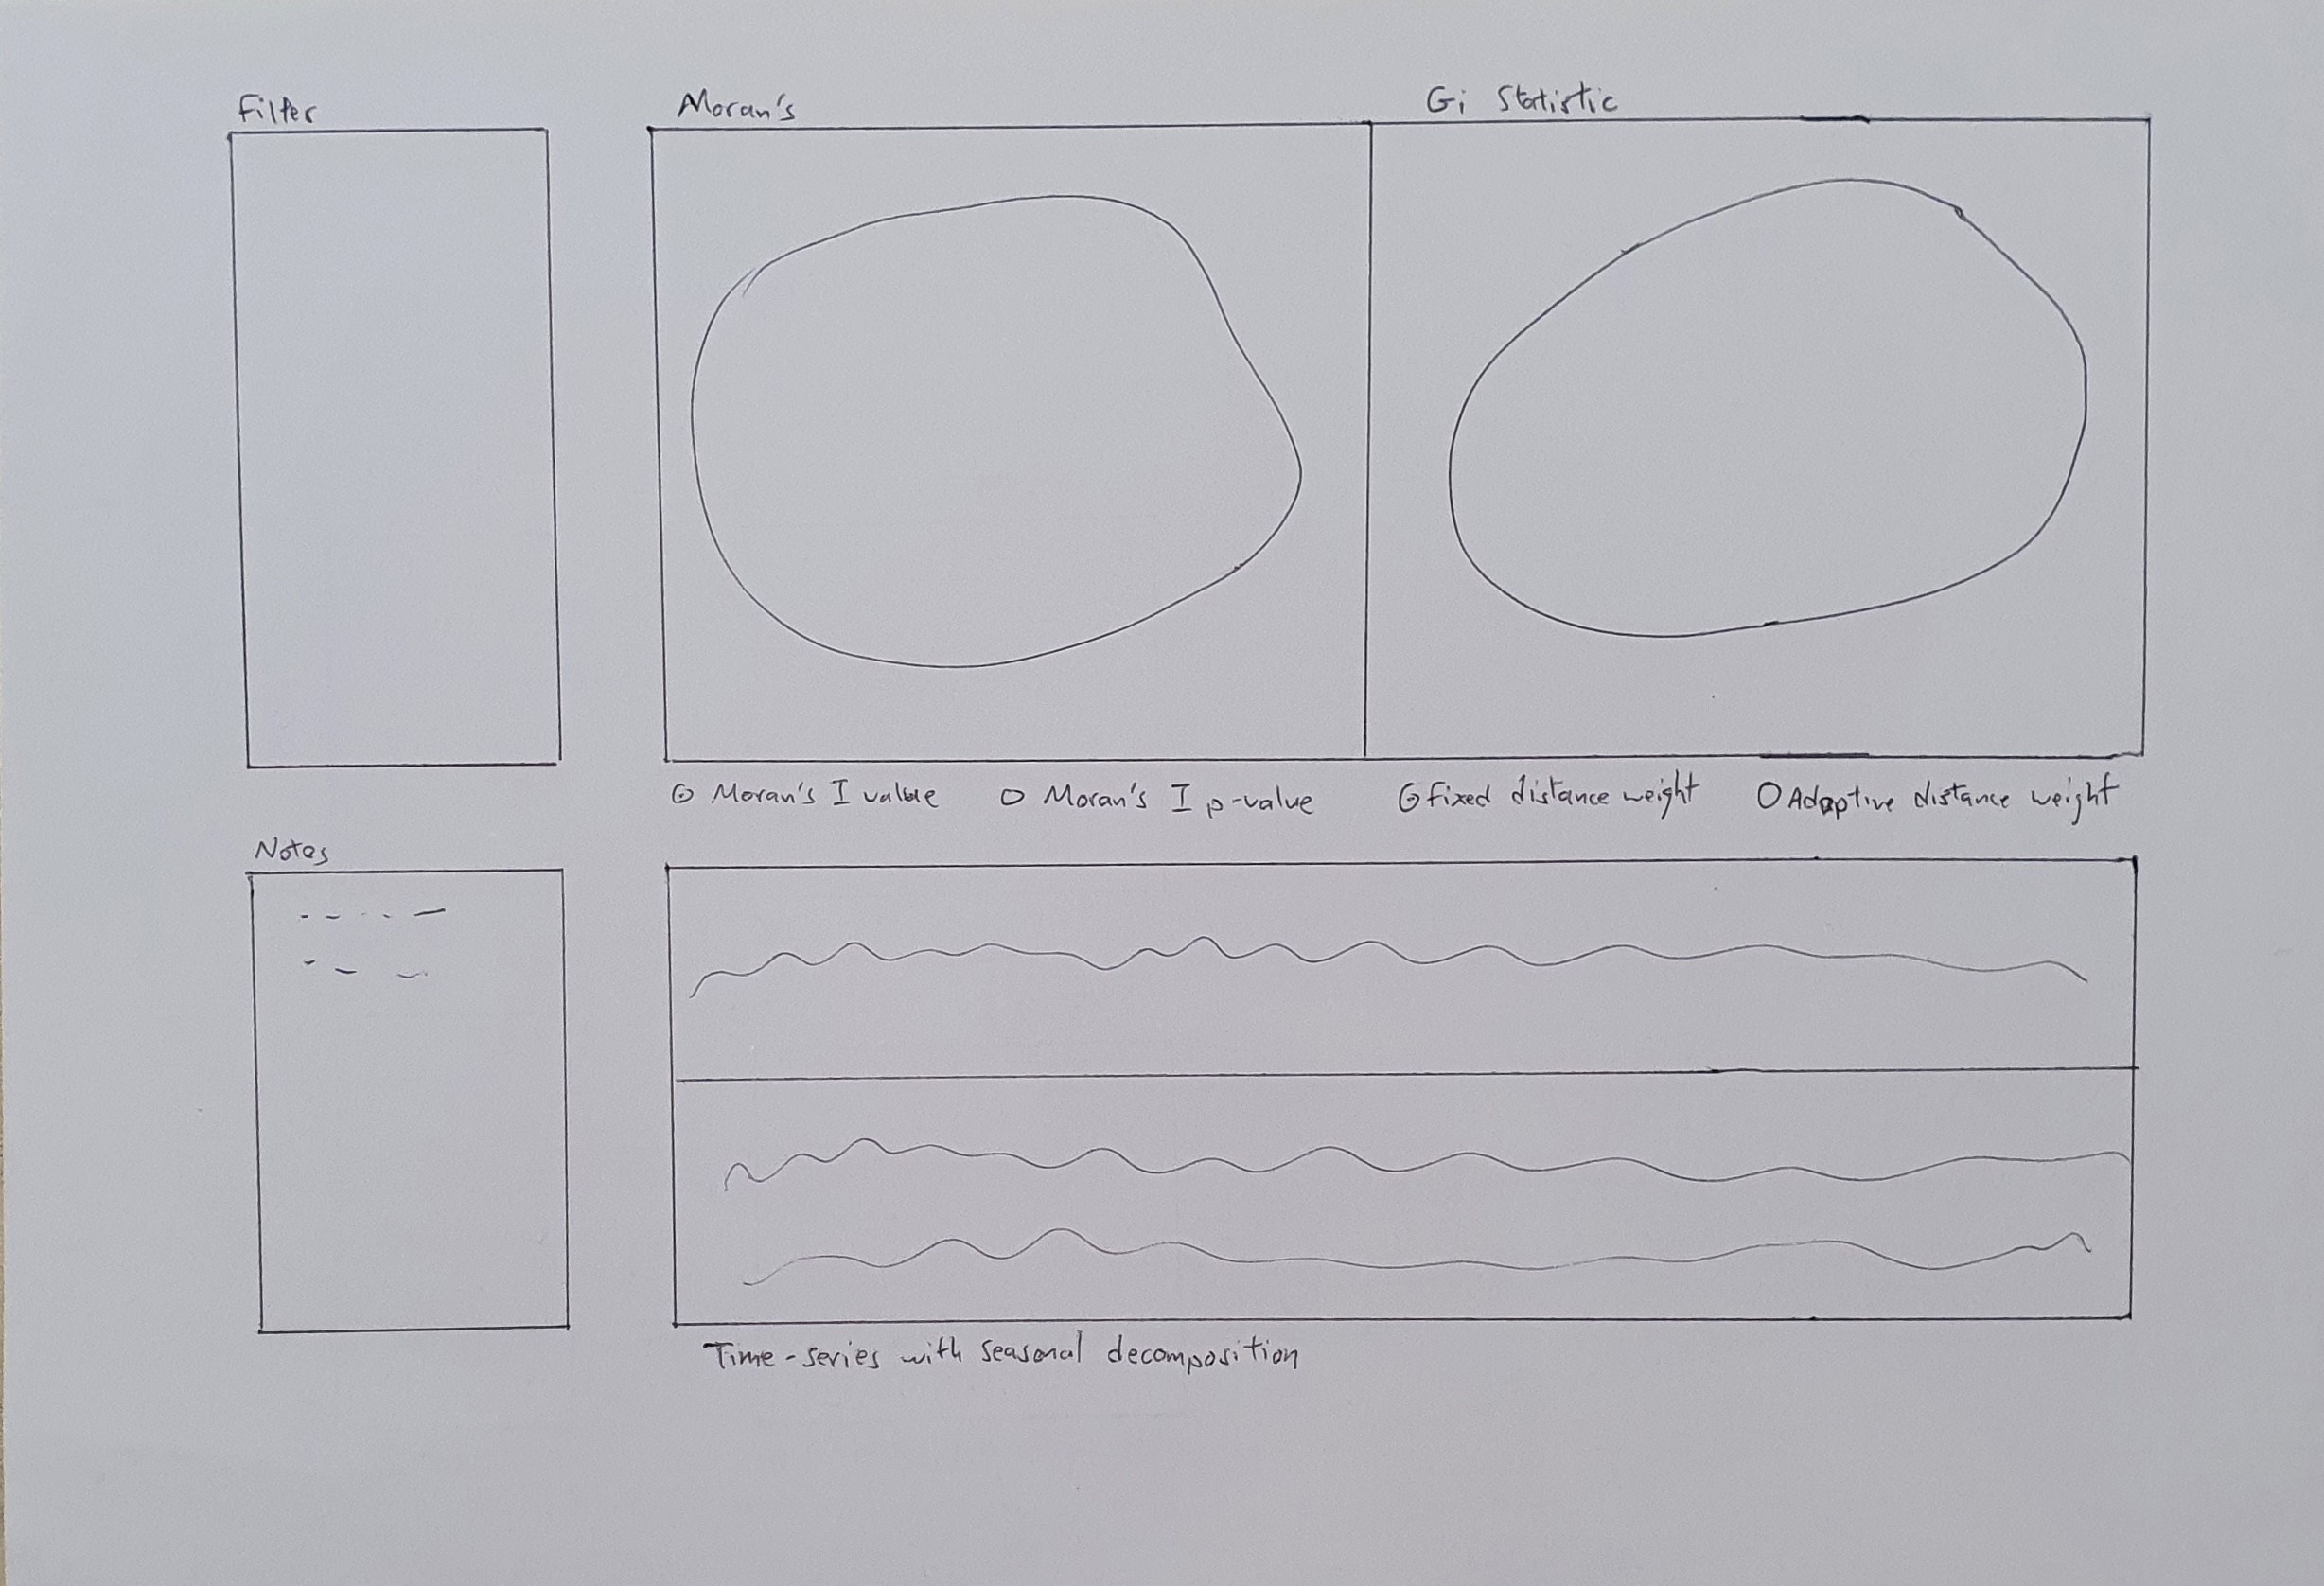 Filter
Moran's
Gi Statistic
Moran's I value
Moran's I p-value
Fixed distance weight
Adaptive distance weight
Notes
Time-series with seasonal decomposition